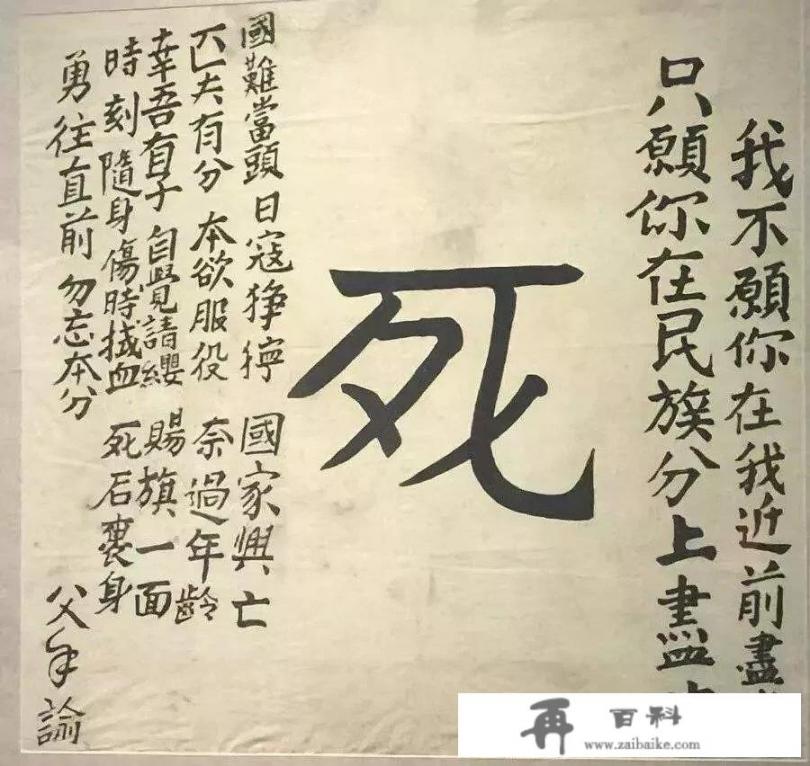 我不願你在我近前盡
只願你在民族分上盡
死
國難當頭 日寇猙獰 國家興亡
匹夫有分 本欲服役 奈過年齡
幸吾有子 自覺請纓 賜旗一面
時刻隨身 傷時拭血 死后裹身
勇往直前 勿忘本分
父手諭
再 百科
www.zaibaike.com